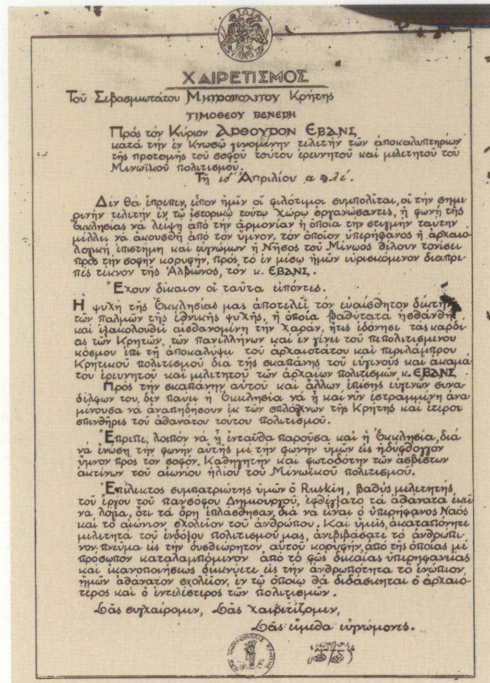 ΧΑΙΡΕΤΙΣΜΟΣ
Τοῦ Σεβασμιωτάτου Μητροπολίτου Κρήτης
ΤΙΜΟΘΕΟΥ ΒΕΝΕΡΗ
Πρὸς τὸν Κύριον ΑΡΘΟΥΡΟΝ ΕΒΑΝΣ
κατὰ τὴν ἐν Κνωσῷ γενομένην τελετὴν τῶν ἀποκαλυπτηρίων
τῆς προτομῆς τοῦ σοφοῦ τούτου ἐρευνητοῦ καὶ μελετητοῦ τοῦ
Μινωϊκοῦ πολιτισμοῦ.
Τῇ Ἀπριλίου
Δὲν θὰ ἔπρεπεν, εἶπον ἡμῖν οἱ φιλότιμοι συμπολῖται, οἱ τὴν σημε
ρινὴν τελετὴν ἐν τῷ ἱστορικῷ τούτῳ χώρῳ ὀργανώσαντες, ἡ φωνὴ τῆς
Ἐκκλησίας νὰ λείψῃ ἀπὸ τὴν ἁρμονίαν ἡ ὁποία τὴν στιγμὴν ταύτην
μέλλει νὰ ἀκουσθῇ ἀπὸ τὸν ὕμνον, τὸν ὁποῖον ὑπερήφανος ἡ ἀρχαιο
λογικὴ ἐπιστήμη καὶ εὐγνώμων ἡ Νῆσος τοῦ Μίνωος θέλουν τονίσει
πρὸς τὴν σοφὴν κορυφήν, πρὸς τὸ ἐν μέσῳ ἡμῶν εὑρισκόμενον διαπρε
πὲς τέκνον τῆς Ἀλβιῶνος, τὸν κ. ΕΒΑΝΣ.
Ἔχουν δίκαιον οἱ ταῦτα εἰπόντες.
Ἡ ψυχὴ τῆς Ἐκκλησίας μας ἀποτελεῖ τὸν εὐαίσθητον δέκτην
τῶν παλμῶν τῆς ἐθνικῆς ψυχῆς, ἡ ὁποία βαθύτατα ἠσθάνθη
καὶ ἐξακολουθεῖ αἰσθανομένη τὴν Χαράν, ἥτις ἐδόνησε τὰς καρδί
ας τῶν Κρητῶν, τῶν πανελλήνων καὶ ἐν γένει τοῦ πεπολιτισμένου
κόσμου ἐπὶ τῇ ἀποκαλύψει τοῦ ἀρχαιοτάτου καὶ περιλάμπρου
Κρητικοῦ πολιτισμοῦ διὰ τῆς σκαπάνης τοῦ εὐγενοῦς καὶ ἀκαμά
του ἐρευνητοῦ καὶ μελετητοῦ τῶν ἀρχαίων πολιτισμῶν κ. ΕΒΑΝΣ
Πρὸς τὴν σκαπάνην αὐτοῦ καὶ ἄλλων ἐπίσης εὐγενῶν συνα
δέλφων του, δὲν παύει ἡ Ἐκκλησία νὰ ᾖ καὶ νῦν ἐστραμμένη ἀνα
μένουσα νὰ ἀναπηδήσουν ἐκ τῶν σπλάχνων τῆς Κρήτης καὶ ἕτεροι
σπινθῆρες τοῦ ἀθανάτου τούτου πολιτισμοῦ.
Ἔπρεπε, λοιπὸν νὰ ᾖ ἐνταῦθα παροῦσα καὶ ἡ Ἐκκλησία, διὰ
νὰ ἑνώσῃ τὴν φωνὴν αὐτῆς μὲ τὴν φωνὴν ὑμῶν εἰς ἡδύφθογγον
ὕμνον πρὸς τὸν σοφόν, Καθηγητὴν καὶ φωτοδότην τῶν ἀσβέστων
ἀκτίνων τοῦ αἰωνίου ἡλίου τοῦ Μινωϊκοῦ πολιτισμοῦ.
Ἐπίλεκτος συμπατριώτης ὑμῶν ὁ Ruskin, βαθὺς μελετητὴς
τοῦ ἔργου τοῦ πανσόφου Δημιουργοῦ, ἐφθέγξατο τὰ ἀθάνατα ἐκεῖ
να λόγια, ὅτι τὰ ὄρη ἐπλάσθησαν, διὰ νὰ εἶναι ὁ ὑπερήφανος Ναὸς
καὶ τὸ αἰώνιον σχολεῖον τοῦ ἀνθρώπου. Καὶ ὑμεῖς, ἀκαταπόνητε
μελετητὰ τοῦ ἐνδόξου πολιτισμοῦ μας, ἀνεβιβάσατε τὸ ἀνθρώπι
νον πνεῦμα εἰς τὴν δυσθεώρητον, αὐτοῦ κορυφήν, ἀπὸ τῆς ὁποίας μὲ
πρόσωπον καταλαμπόμενον ἀπὸ τὸ φῶς δικαίας ὑπερηφανείας
καὶ ἱκανοποιήσεως δεικνύετε εἰς τὴν ἀνθρωπότητα τὸ ἐνώπιον
ἡμῶν ἀθάνατον σχολεῖον, ἐν τῷ ὁποίῳ θὰ διδάσκηται ὁ ἀρχαιό
τερος καὶ ὁ ἐντελέστερος τῶν πολιτισμῶν.
Σᾶς συγχαίρομεν, Σᾶς χαιρετίζομεν,
Σᾶς εἴμεθα εὐγνώμονες.